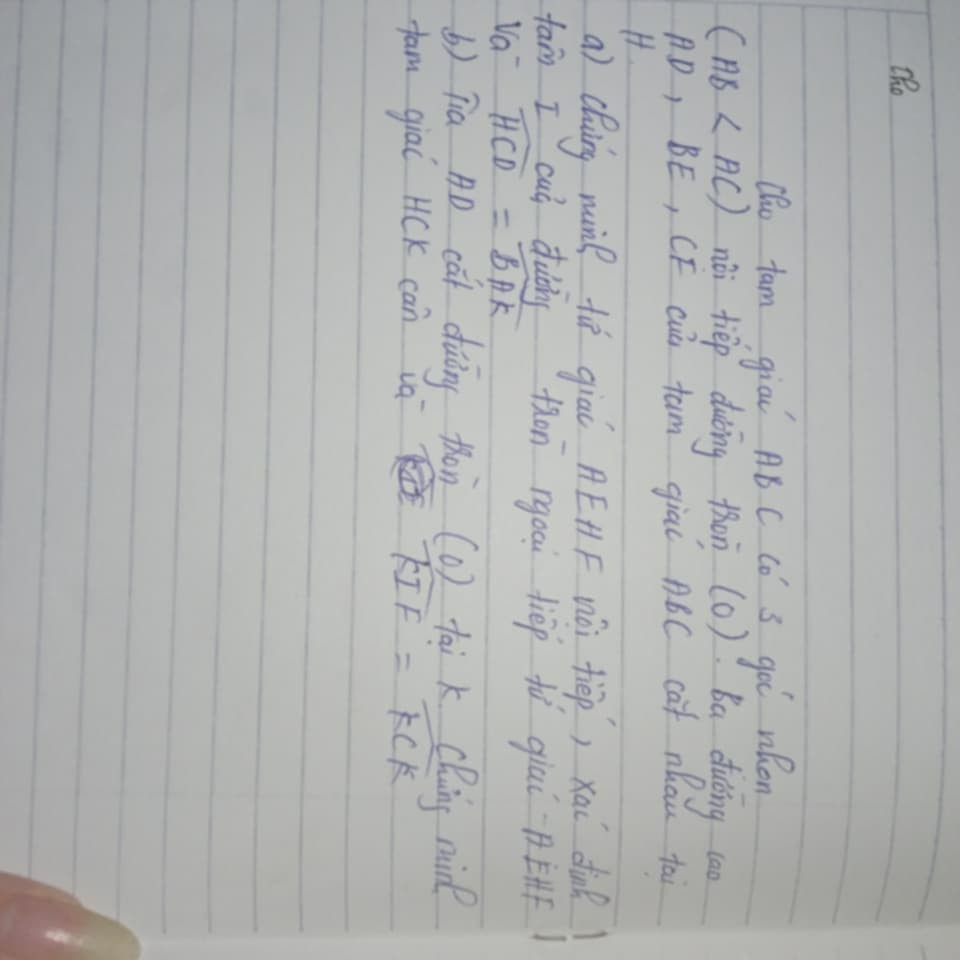 Cho
Cho tam giác ABC có 3 góc nhọn
(AB < AC) nội tiếp đường tròn (O). Ba đường cao
AD, BE, CF của tam giác ABC cắt nhau tại
H.
a) Chứng minh tứ giác AEHF nội tiếp, xác định
tâm I của đường tròn ngoại tiếp tứ giác AEHF
Và HCD = BAK
b) Tia AD cắt đường tròn (O) tại K. Chứng minh
tam giác HCK cân và KIF = KCK